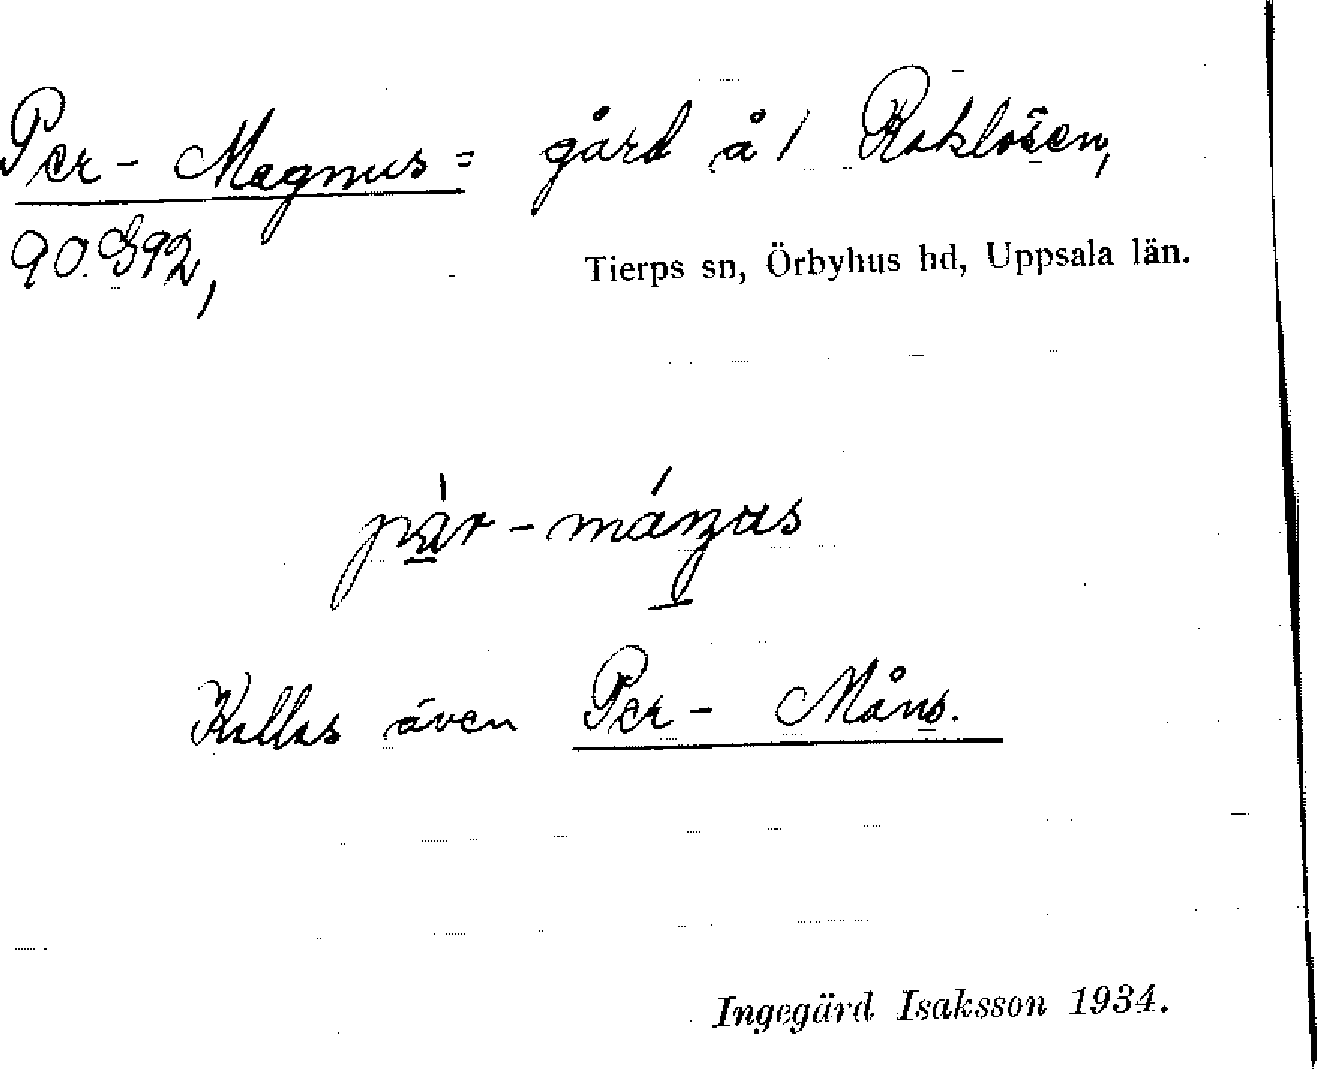 Per-Magnus= gård å 1 Roklösen,
90.G92,
Tierps sn, Örbyhus hd, Uppsala län.
pär-máŋus
Kallas även Per-Måns.
Ingegärd Isaksson 1934.